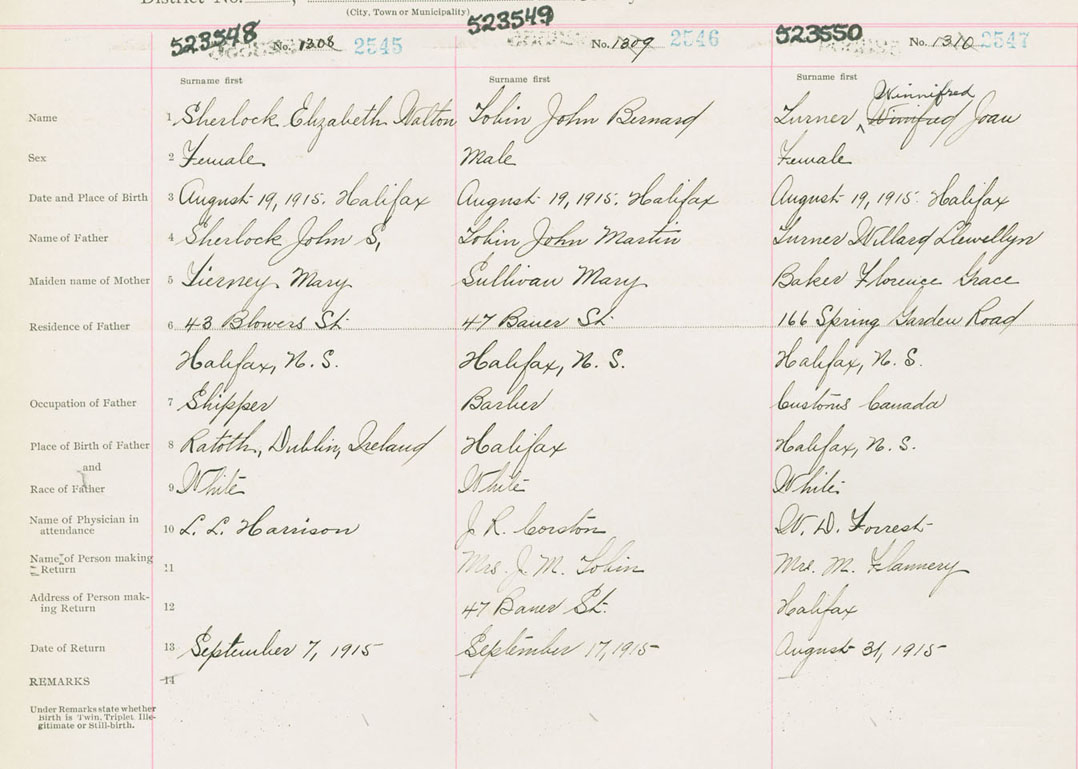 District No.
(City, Town or Municipality)
523548 No. 1308 2545
523549 No. 1309 2546
523550 No. 1310 2547
Surname first Surname first Surname first
Winnifred
Name 1 Sherlock Elizabeth Walton Tobin John Bernard Turner, ^ Winifred Joan
Sex 2 Female Male Female
Date and Place of Birth 3 August 19, 1915. Halifax August 19, 1915. Halifax August 19, 1915. Halifax
Name of Father 4 Sherlock John S, Tobin John Martin Turner Willard Llewellyn
Maiden name of Mother 5 Tierney Mary Sullivan Mary Baker Florence Grace
Residence of Father 6 43 Blowers St. 47 Bauer St. 166 Spring Garden Road
Halifax, N. S. Halifax, N. S. Halifax, N. S.
Occupation of Father 7 Shipper Barber Customs Canada
Place of Birth of Father 8 Ratoth, Dublin, Ireland Halifax Halifax, N. S.
and
Race of Father 9 White White White
Name of Physician in
attendance 10 L. L. Harrison J. R. Corston W. D. Forrest
Name of Person making
Return 11 Mrs. J. M. Tobin Mrs. M. Flannery
Address of Person mak-
ing Return 12 47 Bauer St. Halifax
Date of Return 13 September 7, 1915 September 17, 1915 August 31, 1915
REMARKS 14
Under Remarks state whether
Birth is Twin, Triplet, Ille-
gitimate or Still-birth.